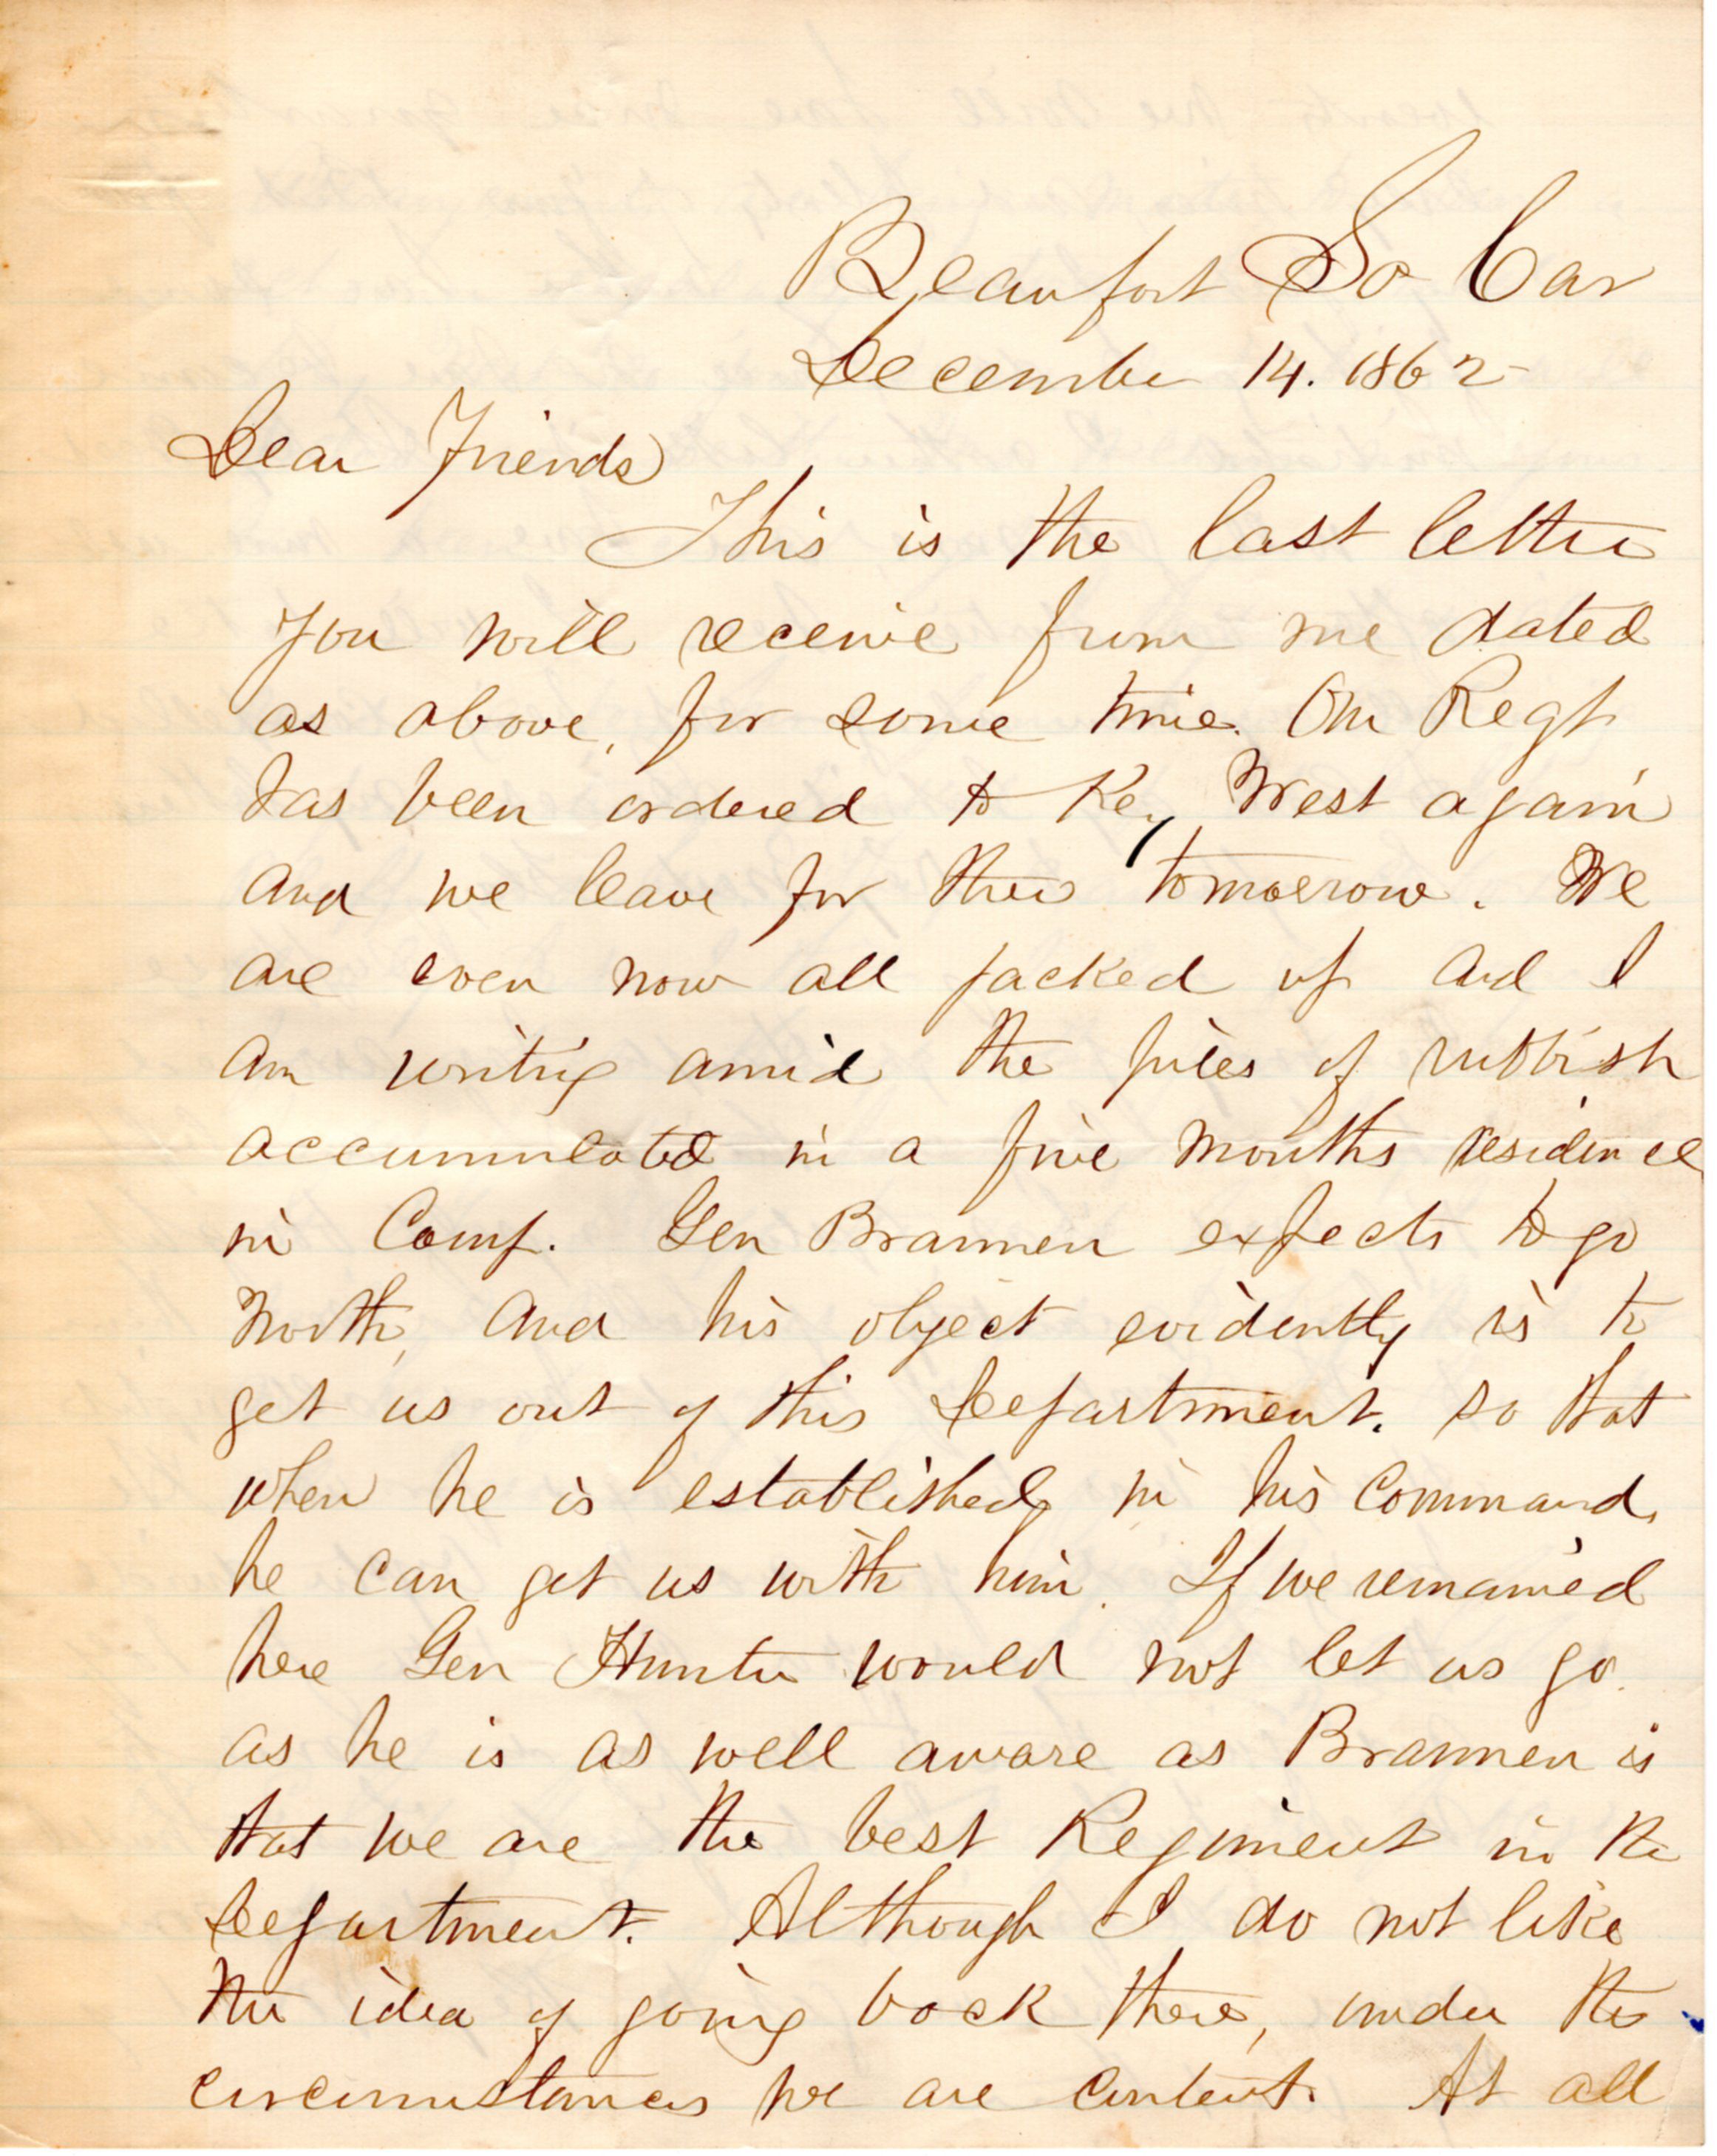 Beaufort So Car
December 14. 1862
Dear Friends
This is the last letter
you will receive from me dated
as above, for some time. Our Regt
has been ordered to Key West again
and we leave for there tomorrow. We
are even now all packed up and I
am writing amid the piles of rubbish
accumulated in a five months residence
in Camp. Gen Brannen expects to go
North, and his object evidently is to
get us out of this Department. so that
when he is established in his command,
he can get us with him. If we remained
here Gen Hunter would not let us go.
as he is as well aware as Brannen is
that we are the best Regiment in the
Department. Although I do not like
the idea of going back there, under the
circumstances we are content. At all